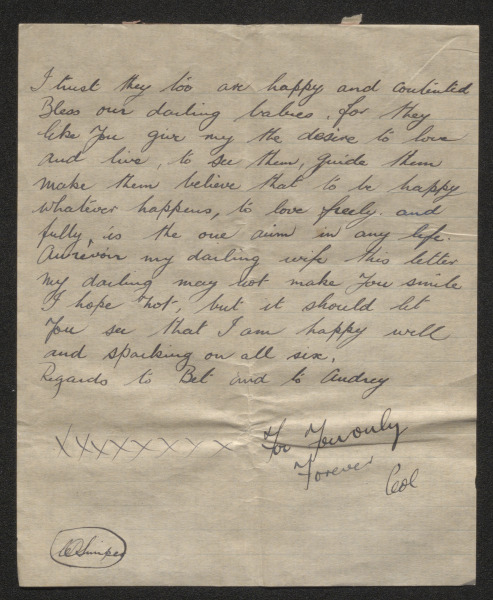 I trust they too are happy and contented
Bless our darling babies, for they
like you give my the desire to love
and live, to see them, guide them
make them believe that to be happy
whatever happens, to love freely and
fully, is the one aim in any life.
Aurevoir my darling wife this letter
my darling may not make you smile
I hope not, but it should let
you see that I am happy well
and sparking on all six.
Regards to Bet and to Audrey
XXXXXXXX For You only
Forever
Col